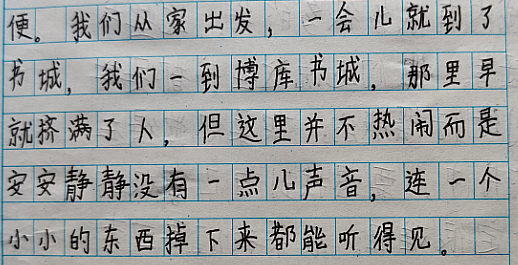 便。我们从家出发,一会儿就到了
书城,我们一到博库书城,那里早
就挤满了人,但这里并不热闹而是
安安静静没有一点儿声音,连一个
小小的东西掉下来都能听得见。